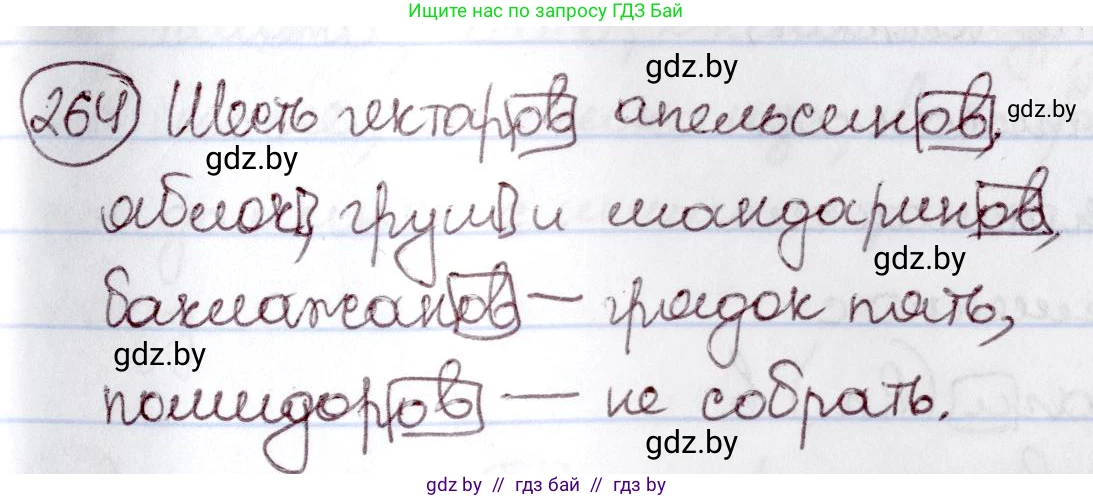 Ищите нас по запросу ГДЗ Бай
gdz.by
264 Шесть гектаров апельсинов, gdz.by
gdz.by
яблок, груш и мандаринов,
gdz.by
баклажанов — грядок пять,
gdz.by
помидоров — не собрать.
gdz.by
gdz.by // гдз бай // gdz.by